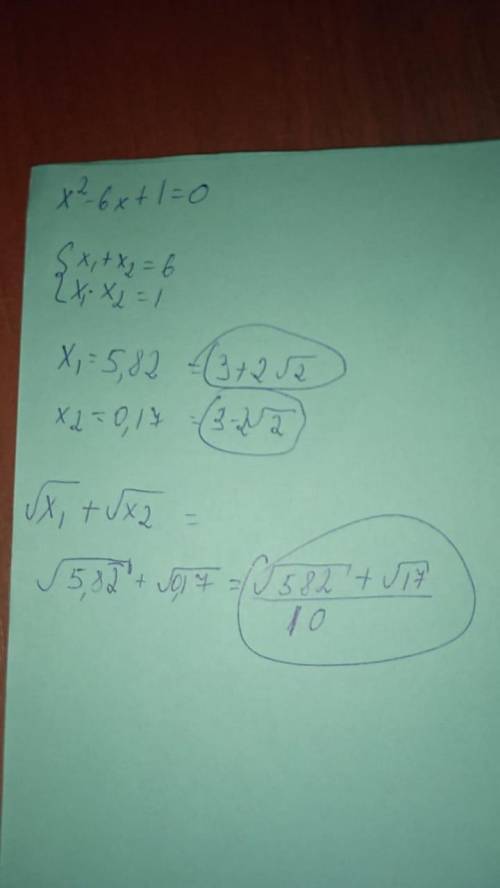 x²-6x+1=0
{x₁+x₂=6
{x₁·x₂=1
x₁=5,82 =(3+2√2
x₂=0,17 =(3-2√2
√x₁+√x₂ =
√5,82+√0,17=(√582+√17)/10